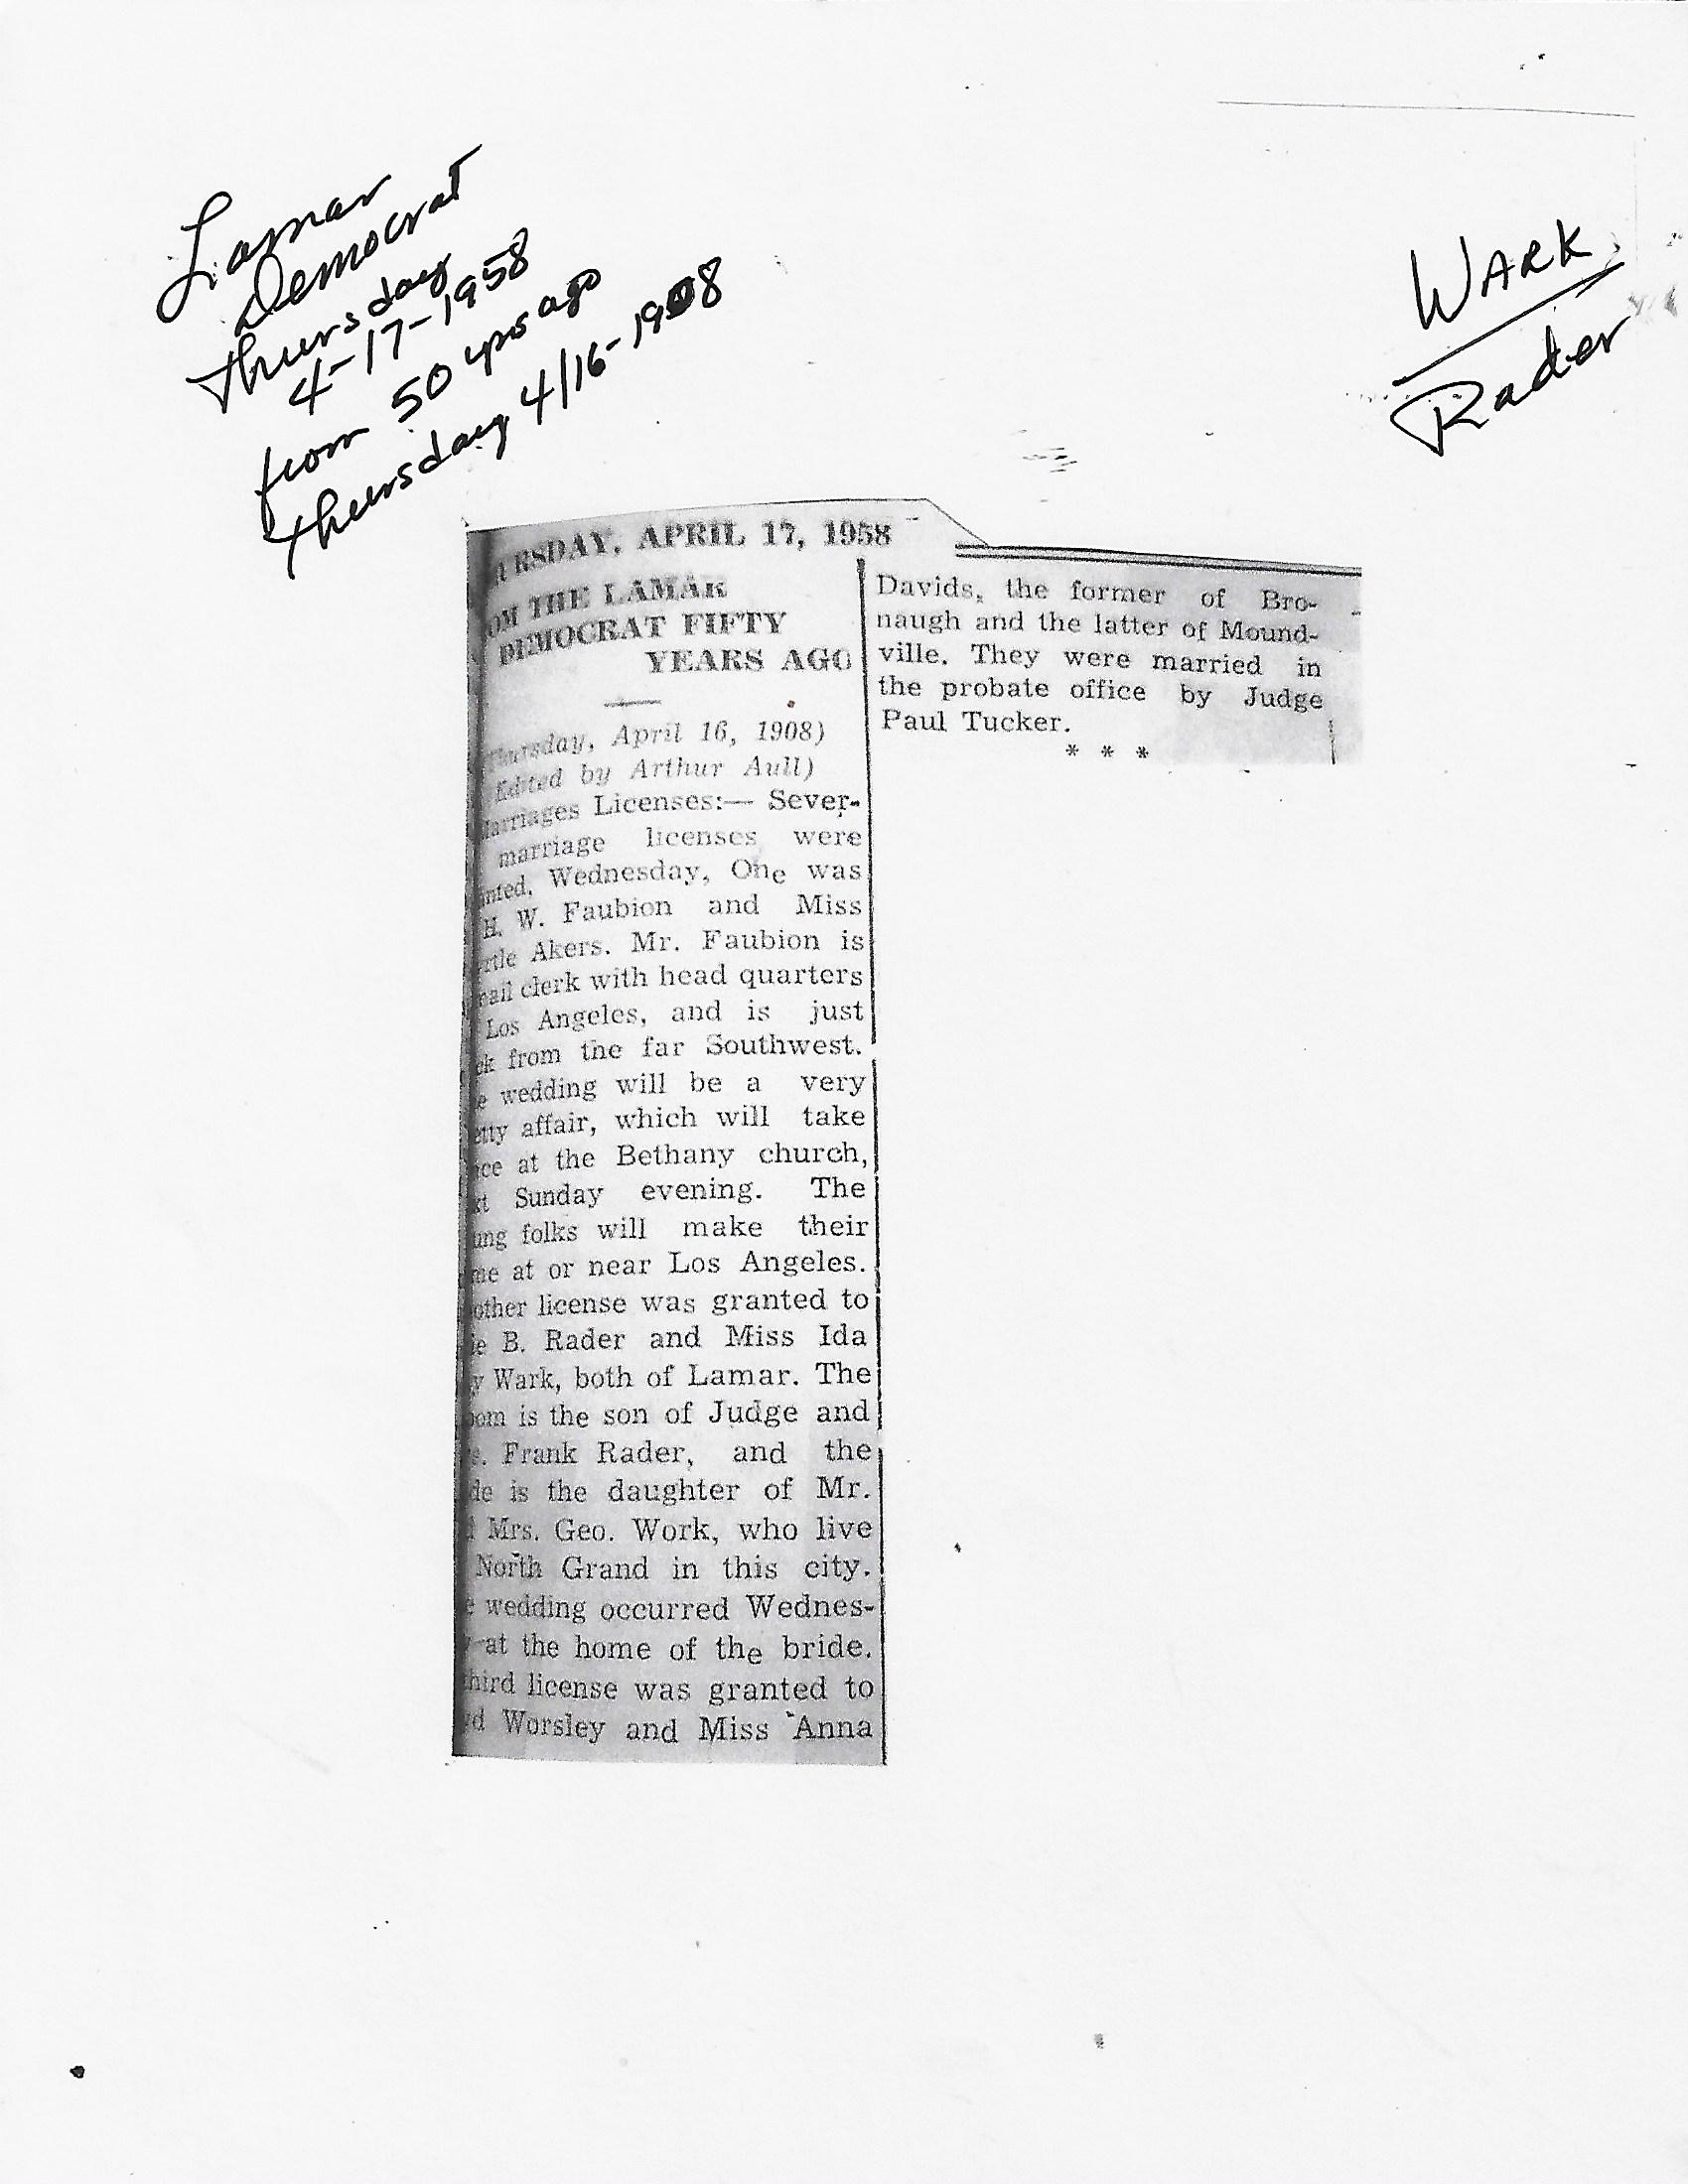 Lamar
Democrat
Thursday
4-17-1958
from 50 yrs ago
Thursday 4/16-1908
WARK
Rader
URSDAY, APRIL 17, 1958
OM THE LAMAR
DEMOCRAT FIFTY
YEARS AGO
hursday, April 16, 1908)
Edited by Arthur Aull)
arriages Licenses:— Sever-
marriage licenses were
nted, Wednesday, One was
H. W. Faubion and Miss
rtle Akers. Mr. Faubion is
ail clerk with head quarters
Los Angeles, and is just
ck from the far Southwest.
e wedding will be a very
etty affair, which will take
ce at the Bethany church,
xt Sunday evening. The
ung folks will make their
me at or near Los Angeles.
other license was granted to
ie B. Rader and Miss Ida
y Wark, both of Lamar. The
oom is the son of Judge and
s. Frank Rader, and the
de is the daughter of Mr.
d Mrs. Geo. Work, who live
North Grand in this city.
e wedding occurred Wednes-
y at the home of the bride.
hird license was granted to
yd Worsley and Miss Anna
Davids, the former of Bro-
naugh and the latter of Mound-
ville. They were married in
the probate office by Judge
Paul Tucker.
* * *